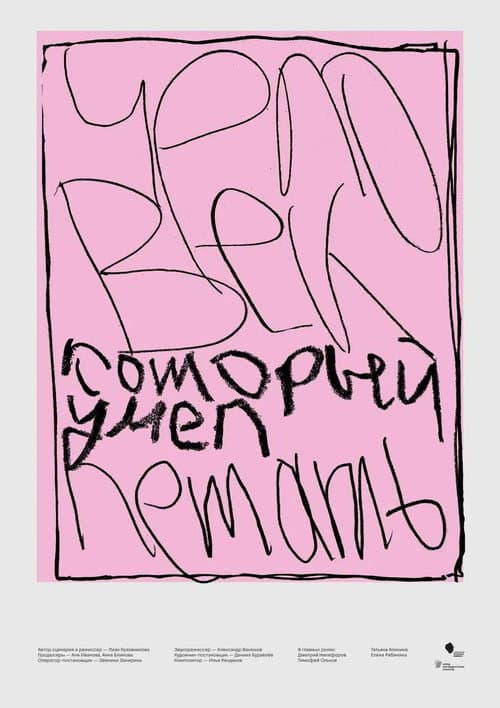 Чело
век
который
умел
летать
Автор сценария и режиссер — Лиза Кулаженкова
Продюсеры — Аня Иванова, Анна Блинова
Звукорежиссер — Александр Ванюков
Художник-постановщик — Даниил Бурдаков
Композитор — Илья Кандинов
В главных ролях:
Дмитрий Никифоров
Тимофей Ольков
Татьяна Блинкина
Елена Рябинкина